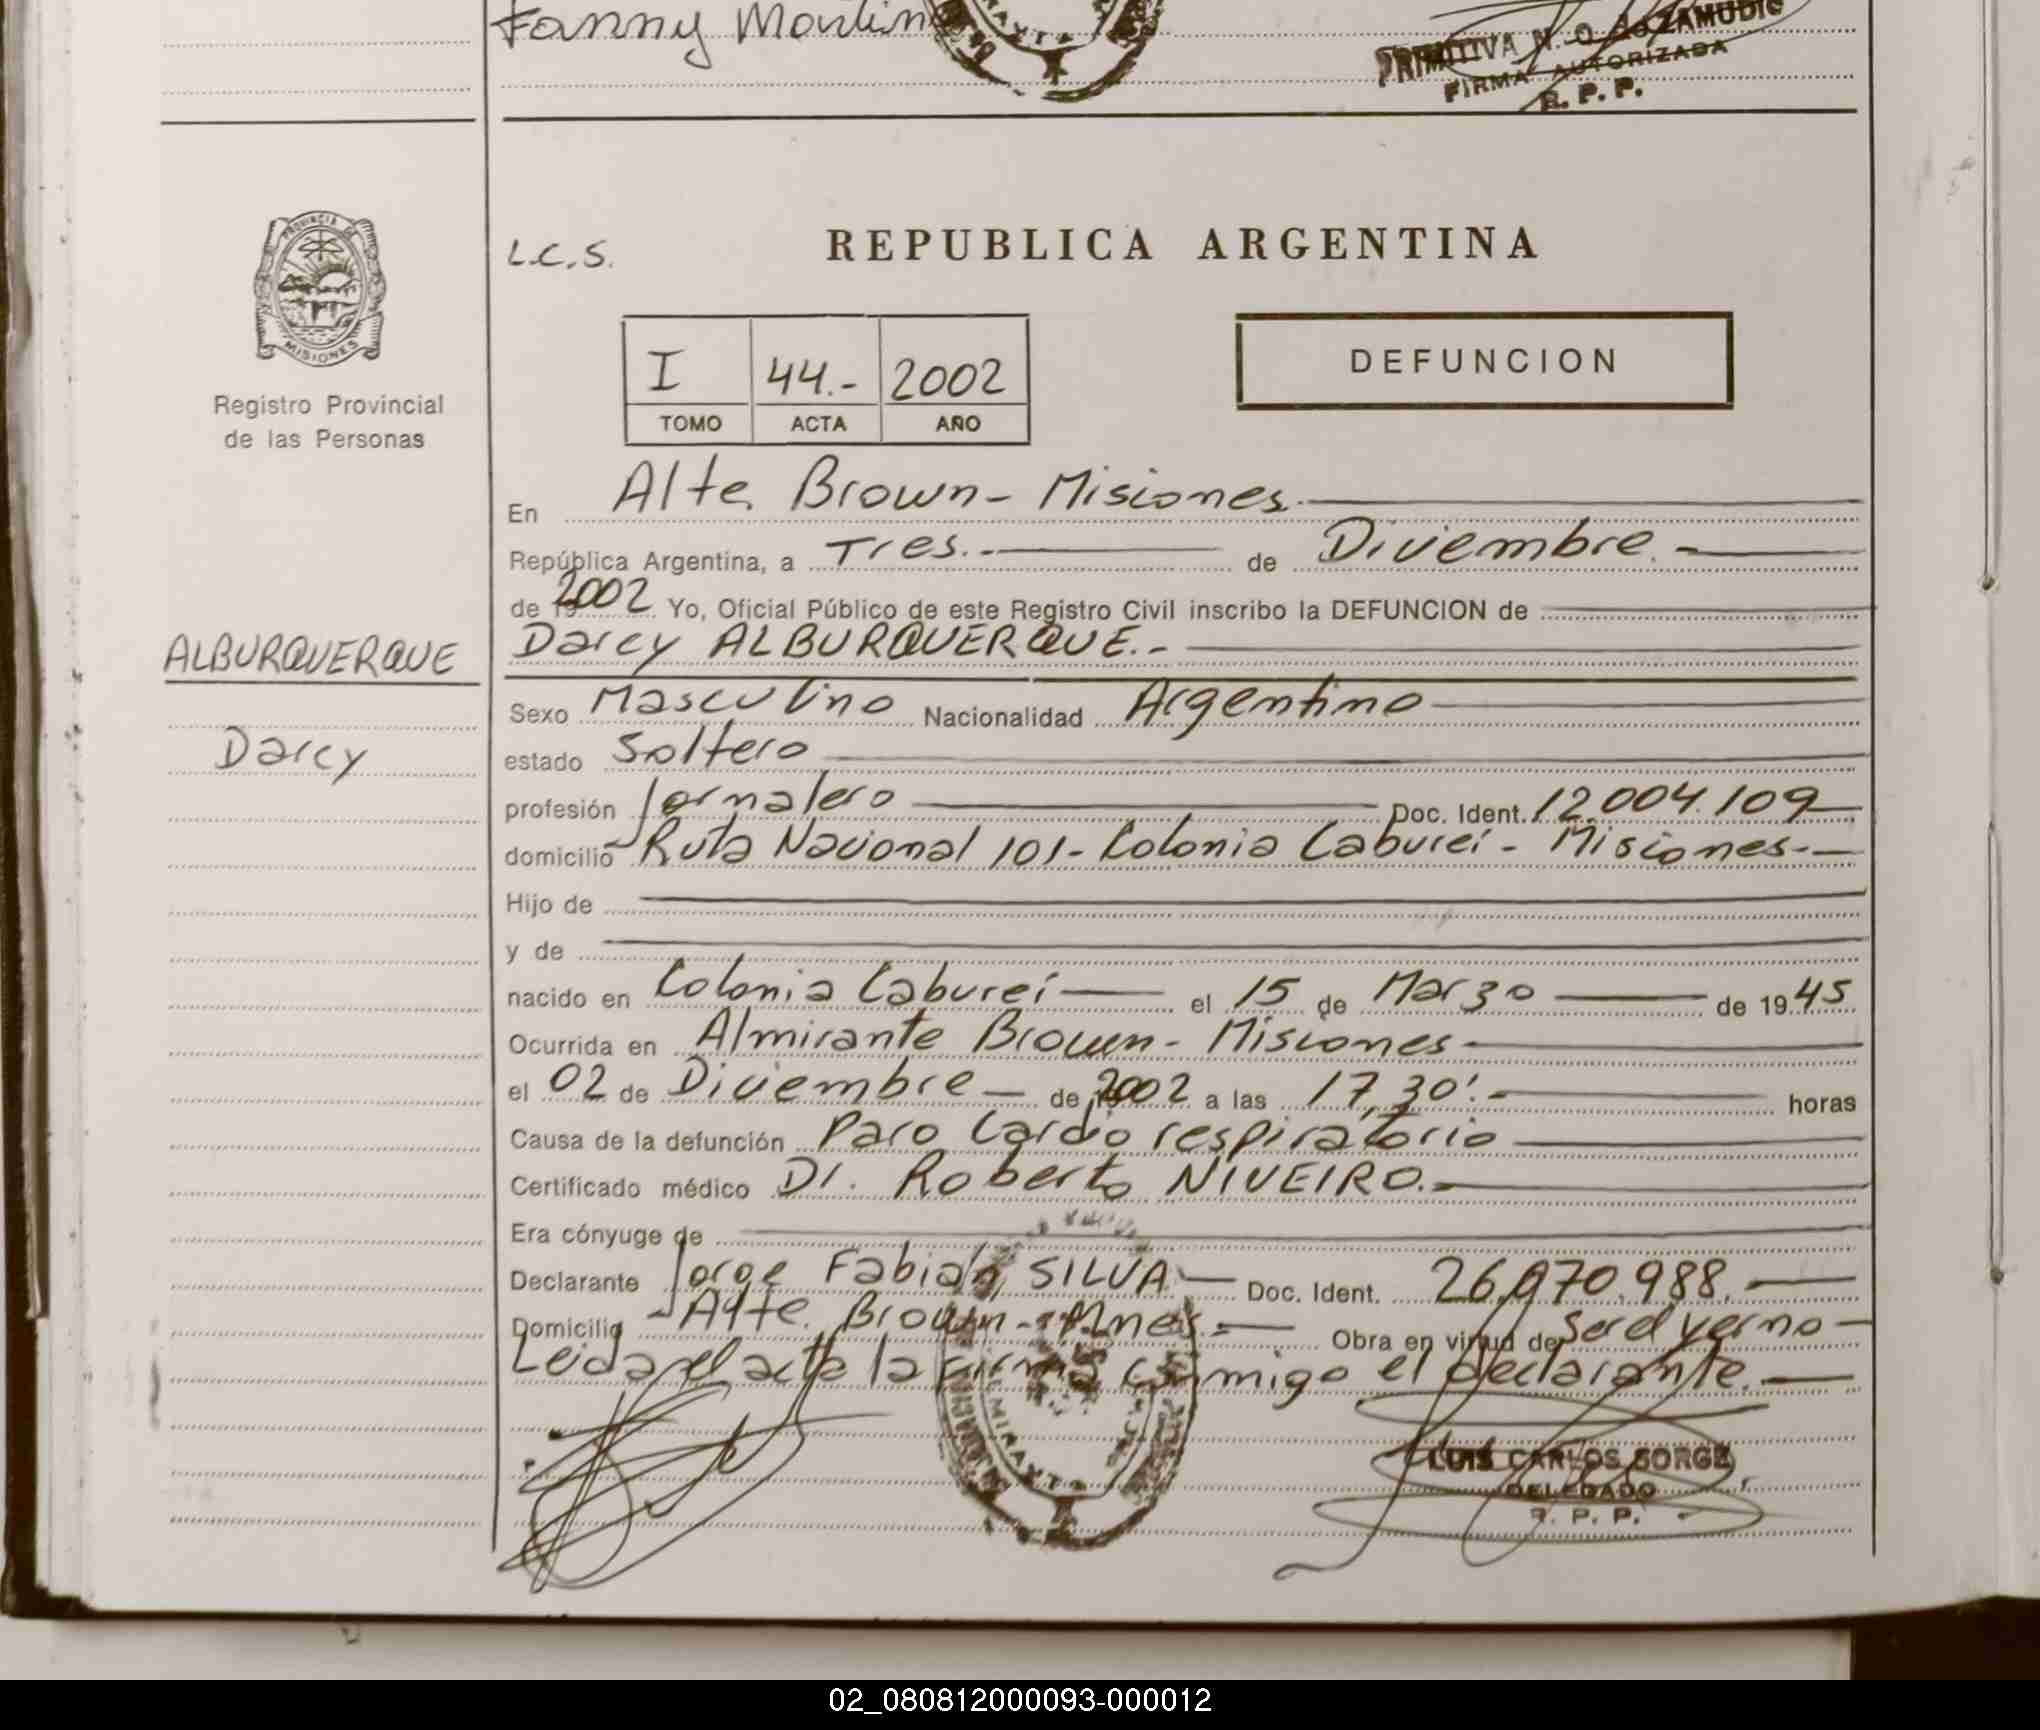 Fanny Martin
PRIMITIVA N. O.
FIRMA AUTORIZADA
R. P. P.
PROVINCIA DE
MISIONES
Registro Provincial
de las Personas
ALBURQUERQUE
Darcy
L.C.S.
REPUBLICA ARGENTINA
I 44.- 2002
TOMO ACTA AÑO
DEFUNCION
En Alte. Brown - Misiones.
República Argentina, a Tres.- de Diciembre.-
de 2002 Yo, Oficial Público de este Registro Civil inscribo la DEFUNCION de
Darcy ALBURQUERQUE.-
Sexo Masculino Nacionalidad Argentino
estado Soltero
profesión Jornalero Doc. Ident. 12.004.109
domicilio Ruta Nacional 101 - Colonia Cabureí - Misiones.-
Hijo de
y de
nacido en Colonia Cabureí el 15 de Marzo de 1945
Ocurrida en Almirante Brown - Misiones
el 02 de Diciembre de 2002 a las 17,30'.- horas
Causa de la defunción Paro Cardio respiratorio
Certificado médico Dr. Roberto NIVEIRO.-
Era cónyuge de
Declarante Jorge Fabián SILVA Doc. Ident. 26.970.988.
Domicilio Alte. Brown - Mnes.- Obra en virtud de Ser el yerno
Leida el acta la firma conmigo el declarante.
LUIS CARLOS SORGE
DELEGADO
R. P. P.
02_080812000093-000012